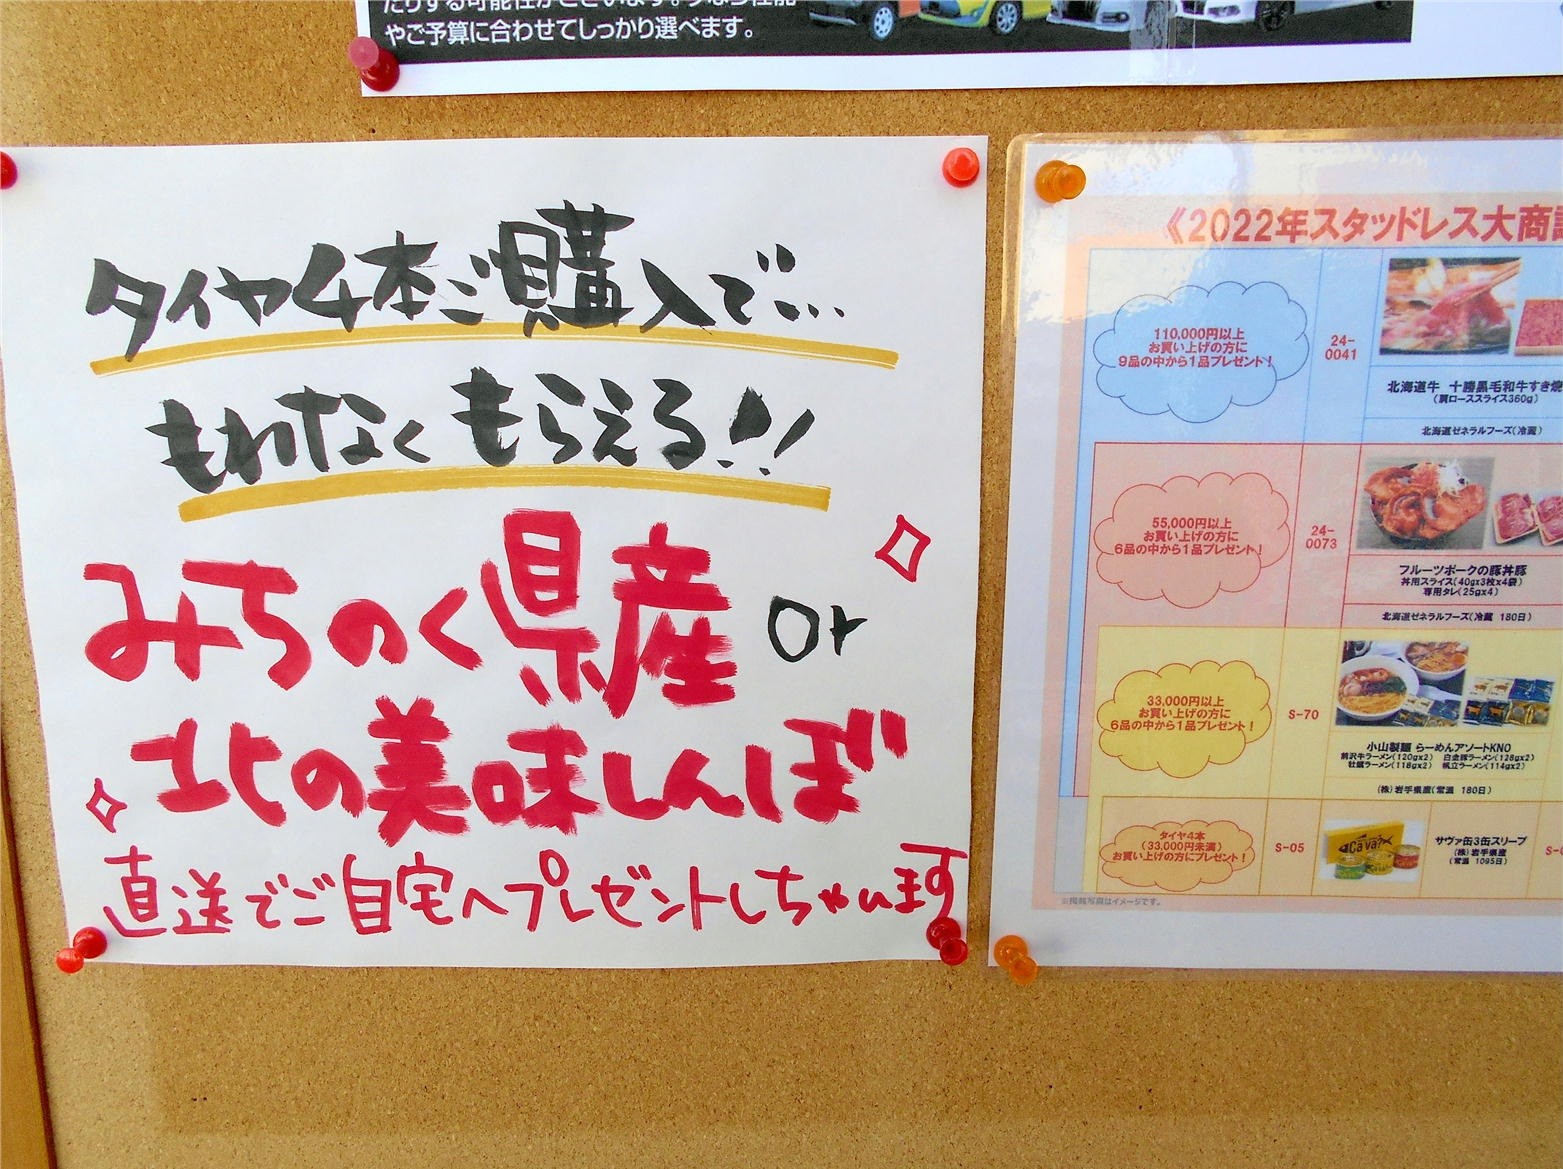 やご予算に合わせてしっかり選べます。
タイヤ4本ご購入で…
もれなくもらえる!!
みちのく県産 or
北の美味しんぼ
直送でご自宅へプレゼントしちゃいます
《2022年スタッドレス大商談
110,000円以上
お買い上げの方に
9品の中から1品プレゼント!
24-
0041
北海道牛 十勝黒毛和牛すき焼
(肩ローススライス360g)
北海道ゼネラルフーズ(冷蔵)
55,000円以上
お買い上げの方に
6品の中から1品プレゼント!
24-
0073
フルーツポークの豚丼豚
丼用スライス(40gx3枚x4袋)
専用タレ(25gx4)
北海道ゼネラルフーズ(冷蔵 180日)
33,000円以上
お買い上げの方に
6品の中から1品プレゼント!
S-70
小山製麺 らーめんアソートKNO
前沢牛ラーメン(120gx2) 白金豚ラーメン(128gx2)
牡蠣ラーメン(118gx2) 帆立ラーメン(114gx2)
(株)岩手県産(常温 180日)
タイヤ4本
(33,000円未満)
お買い上げの方にプレゼント!
S-05
Ça va?
サヴァ缶3缶スリーブ
(株)岩手県産
(常温 1095日)
※掲載写真はイメージです。